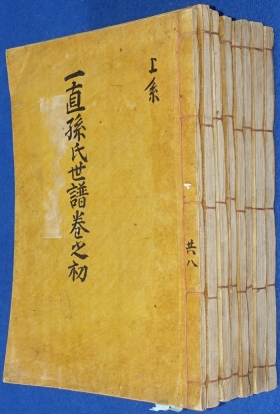 上系
一直孫氏世譜卷之初
共八